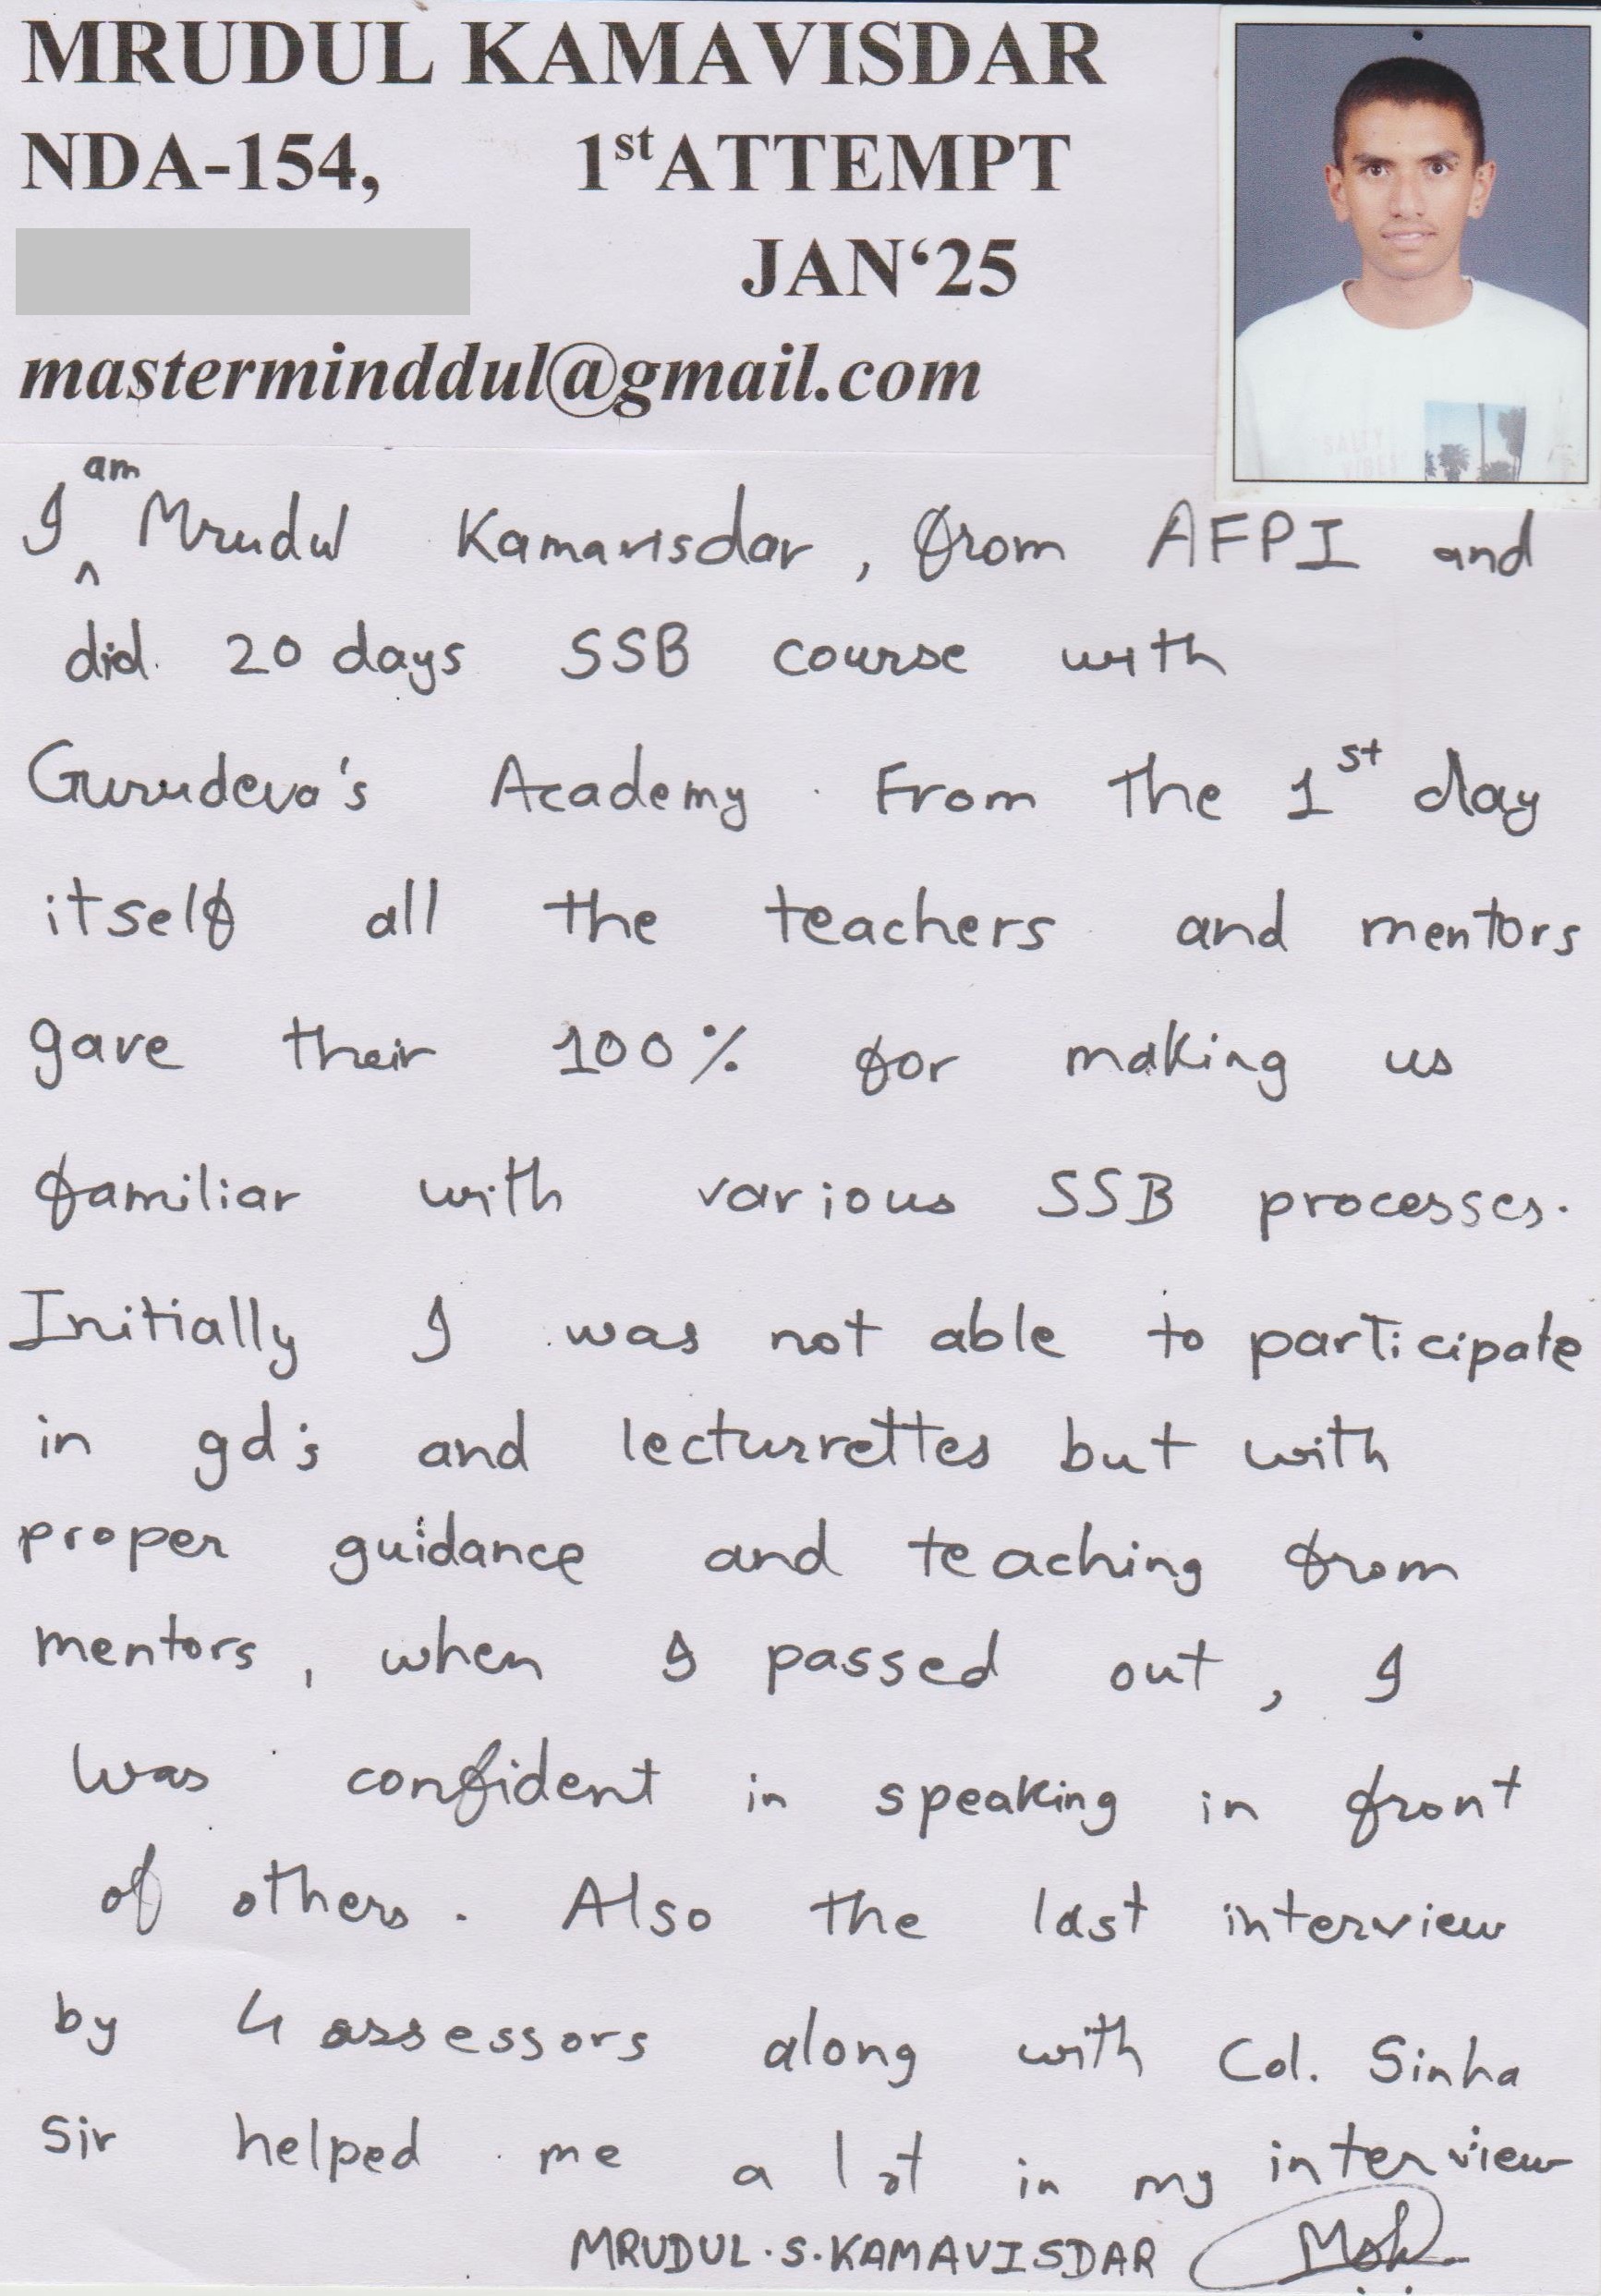 MRUDUL KAMAVISDAR
NDA-154, 1st ATTEMPT
JAN‘25
masterminddul@gmail.com
SALTY
VIBES
I am Mrudul Kamavisdar, from AFPI and
did. 20 days SSB course with
Gurudeva's Academy. From the 1st day
itself all the teachers and mentors
gave their 100% for making us
familiar with various SSB processes.
Initially I was not able to participate
in gd's and lecturrettes but with
proper guidance and teaching from
mentors, when I passed out, I
was confident in speaking in front
of others. Also the last interview
by 4 assessors along with Col. Sinha
Sir helped me a lot in my interview
MRUDUL.S.KAMAVISDAR